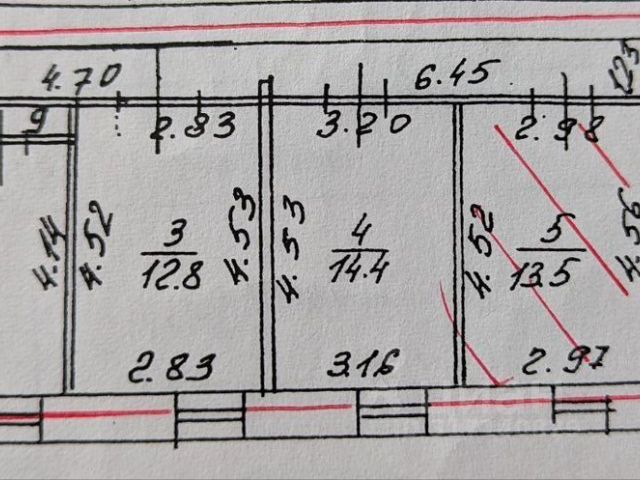 4.70
6.45
1.25
9
2.83
3.20
2.98
4.14
4.52
3
12.8
4.53
4.53
4
14.4
4.52
5
13.5
4.56
2.83
3.16
2.97